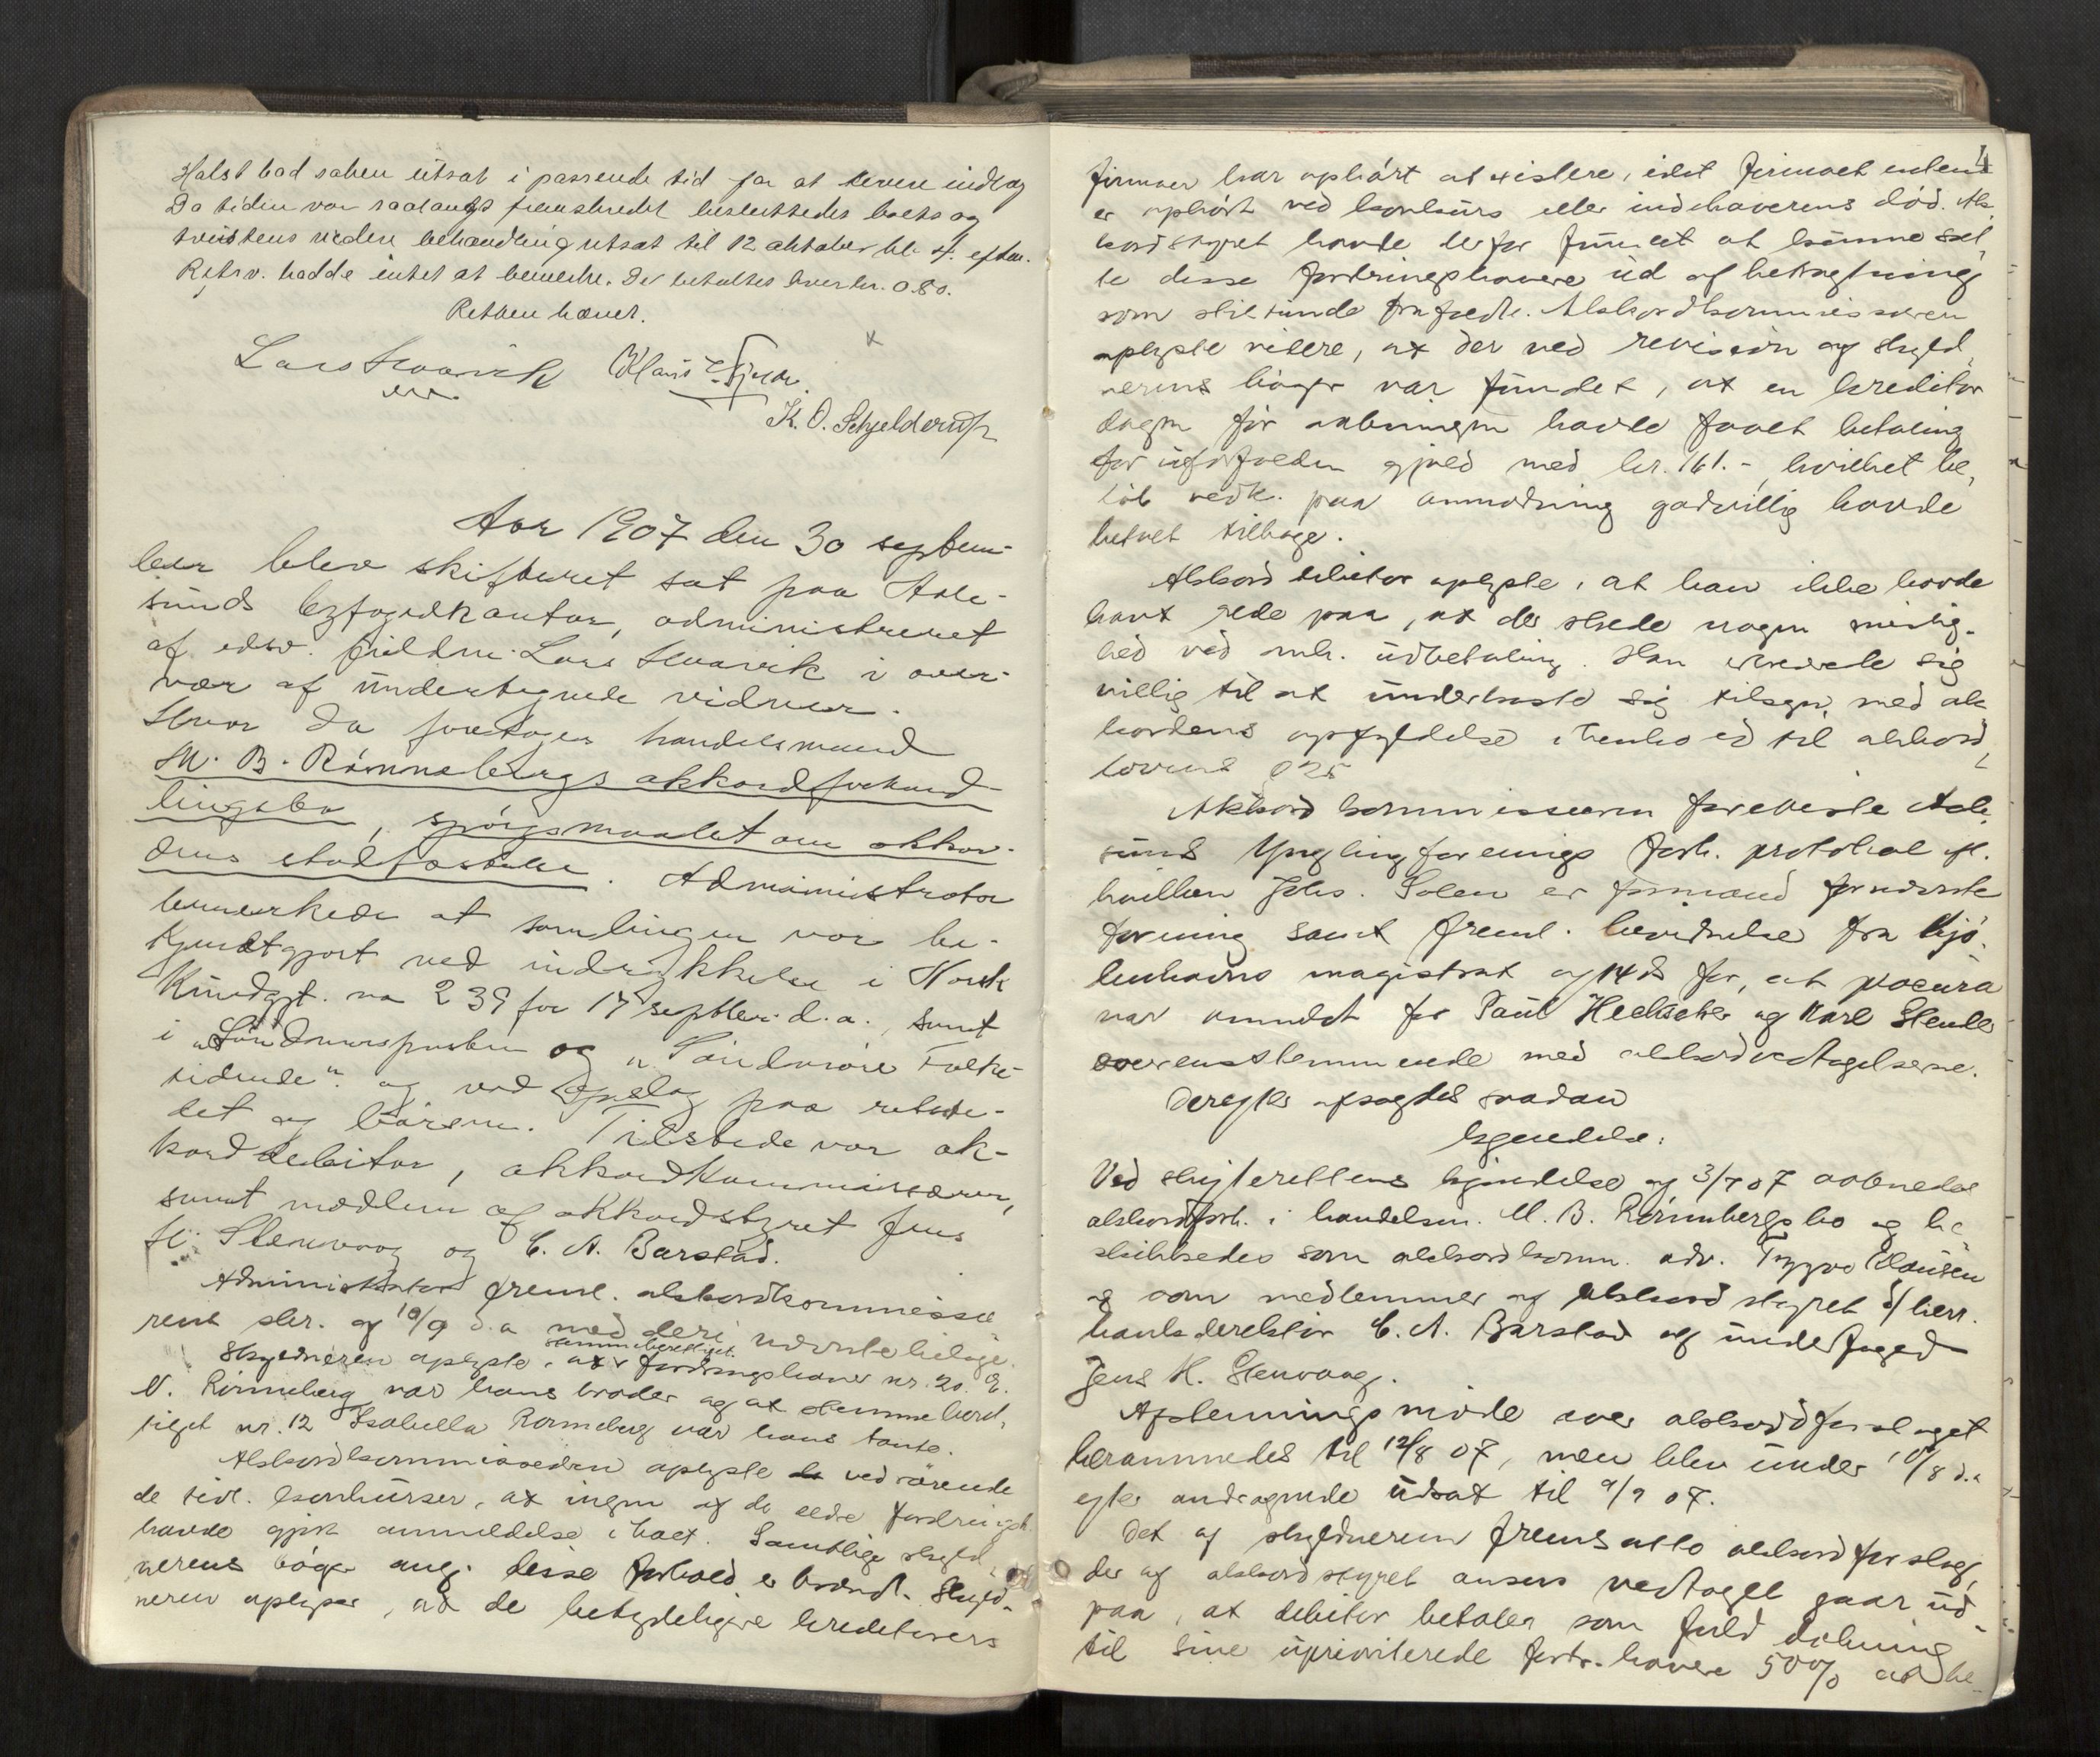 Holst bad saken utsat i passende tid for at levere indlæg
Da tiden var raadangs fremskredet besluttedes boets og
tvistens videre behandling utsat til 12 oktober kl. 4 efterm.
Retsv. hadde intet at bemerke. De betaltes hver kr. 0.80.
Retten hævet.
Lars Hvarvik Klaus
K. O. Schjelderup
Aar 1907 den 30 septem-
ber blev skifteret sat paa Aale-
sunds byfogedkontor, administreret
af edsv. fuldm. Lars Hvarvik i over-
vær af undertegnede vidner.
Hvor da foretoges handelsmand
M. B. Rönnebergs akkordforhand-
lingsbo, spörgsmaalet om akkor-
dens stadfæstelse. Administrator
bemærkede at samlingen var be-
kjendtgjort ved indrykkelse i Norsk
Kundgjt. no 239 for 17 septbr. d.a., samt
i "Söndmörsposten og "Söndmöre Folke-
tidende" og ved opslag paa retste-
det og börsen. Tilstede var ak-
korddebitor, akkordkommissæren,
samt medlem af akkordstyret Jens
H. Stenvaag og C. A. Barstad.
Administrator freml. akkordkommissæ
rens skr. af 10/9 d.a med deri nævnte bilage.
Skyldneren oplyste, at stemmeberettiget fordringshaver nr. 20. E.
N. Rönneberg var hans broder og at stemmeberet,
tiget nr. 12 Isabella Rönneberg var hans tante.
Akkordkommissæren oplyste vedrörende
de tidl. konkurser, at ingen af de ældre fordringsh.
havde gjort anmeldelse i boet. Samtlige skyld,
nerens böger ang. disse forhold er brændt. Skyld-
neren oplyser, at de betydeligere kreditorers
4
firmaer har ophört at existere, idet firmaet enten
er ophört ved konkurs eller indehaverens död. Ak,
kordstyret havde derfor fundet at kunne sæt,
te disse fordringshavere ud af betragtning
som stiltiende frafaldt. Akkordkommissæren
oplyste videre, at der ved revision af skyld,
nerens böger var fundet, at en kreditor
dagen för aabningen havde faaet betaling
for uforfalden gjæld med kr. 161.-, hvilket be,
löb vedk. paa anmodning godvillig havde
betalt tilbage.
Akkorddebitor oplyste, at han ikke havde
havt rede paa, at der skede nogen mislig-
hed ved nævnte udbetaling. Han erklærede sig
villig til at underkaste sig tilsyn med ak
kordens opfyldelse i henhold til akkord,
lovens § 25
Akkordkommissæren foreviste Aale,
sunds Ynglingforenings forh. protokol ifl.
hvilken Johs. Solem er formand for nævnte
forening samt freml. bevidnelse fra Kjö,
benhavns magistrat af 14 ds for, at procura
var anmeldt for Paul Heckscher og Karl Stende
overensstemmende med akkordvedtagelserne.
Derefter afsagdes saadan
kjendelse:
Ved skifterettens kjendelse af 3/7 07 aabnedes
akkordforh. i handelsm. M. B. Rönnebergs bo og be,
skikkedes som akkordkomm. adv. Trygve Klausen
og som medlemmer af akkordstyret d/herr.
bankdirektör C. A. Barstad og underfoged
Jens H. Stenvaag.
Afstemningsmöde over akkordforslaget
berammedes til 12/8 07, men blev under 10/8 d.a
efter andragende udsat til 9/9 07.
Det af skyldneren fremsatte akkordforslag,
der af akkordstyret ansees vedtaget gaar ud
paa, at debitor betaler som fuld dækning
til sine upriviterede fordr.havere 50% at be-